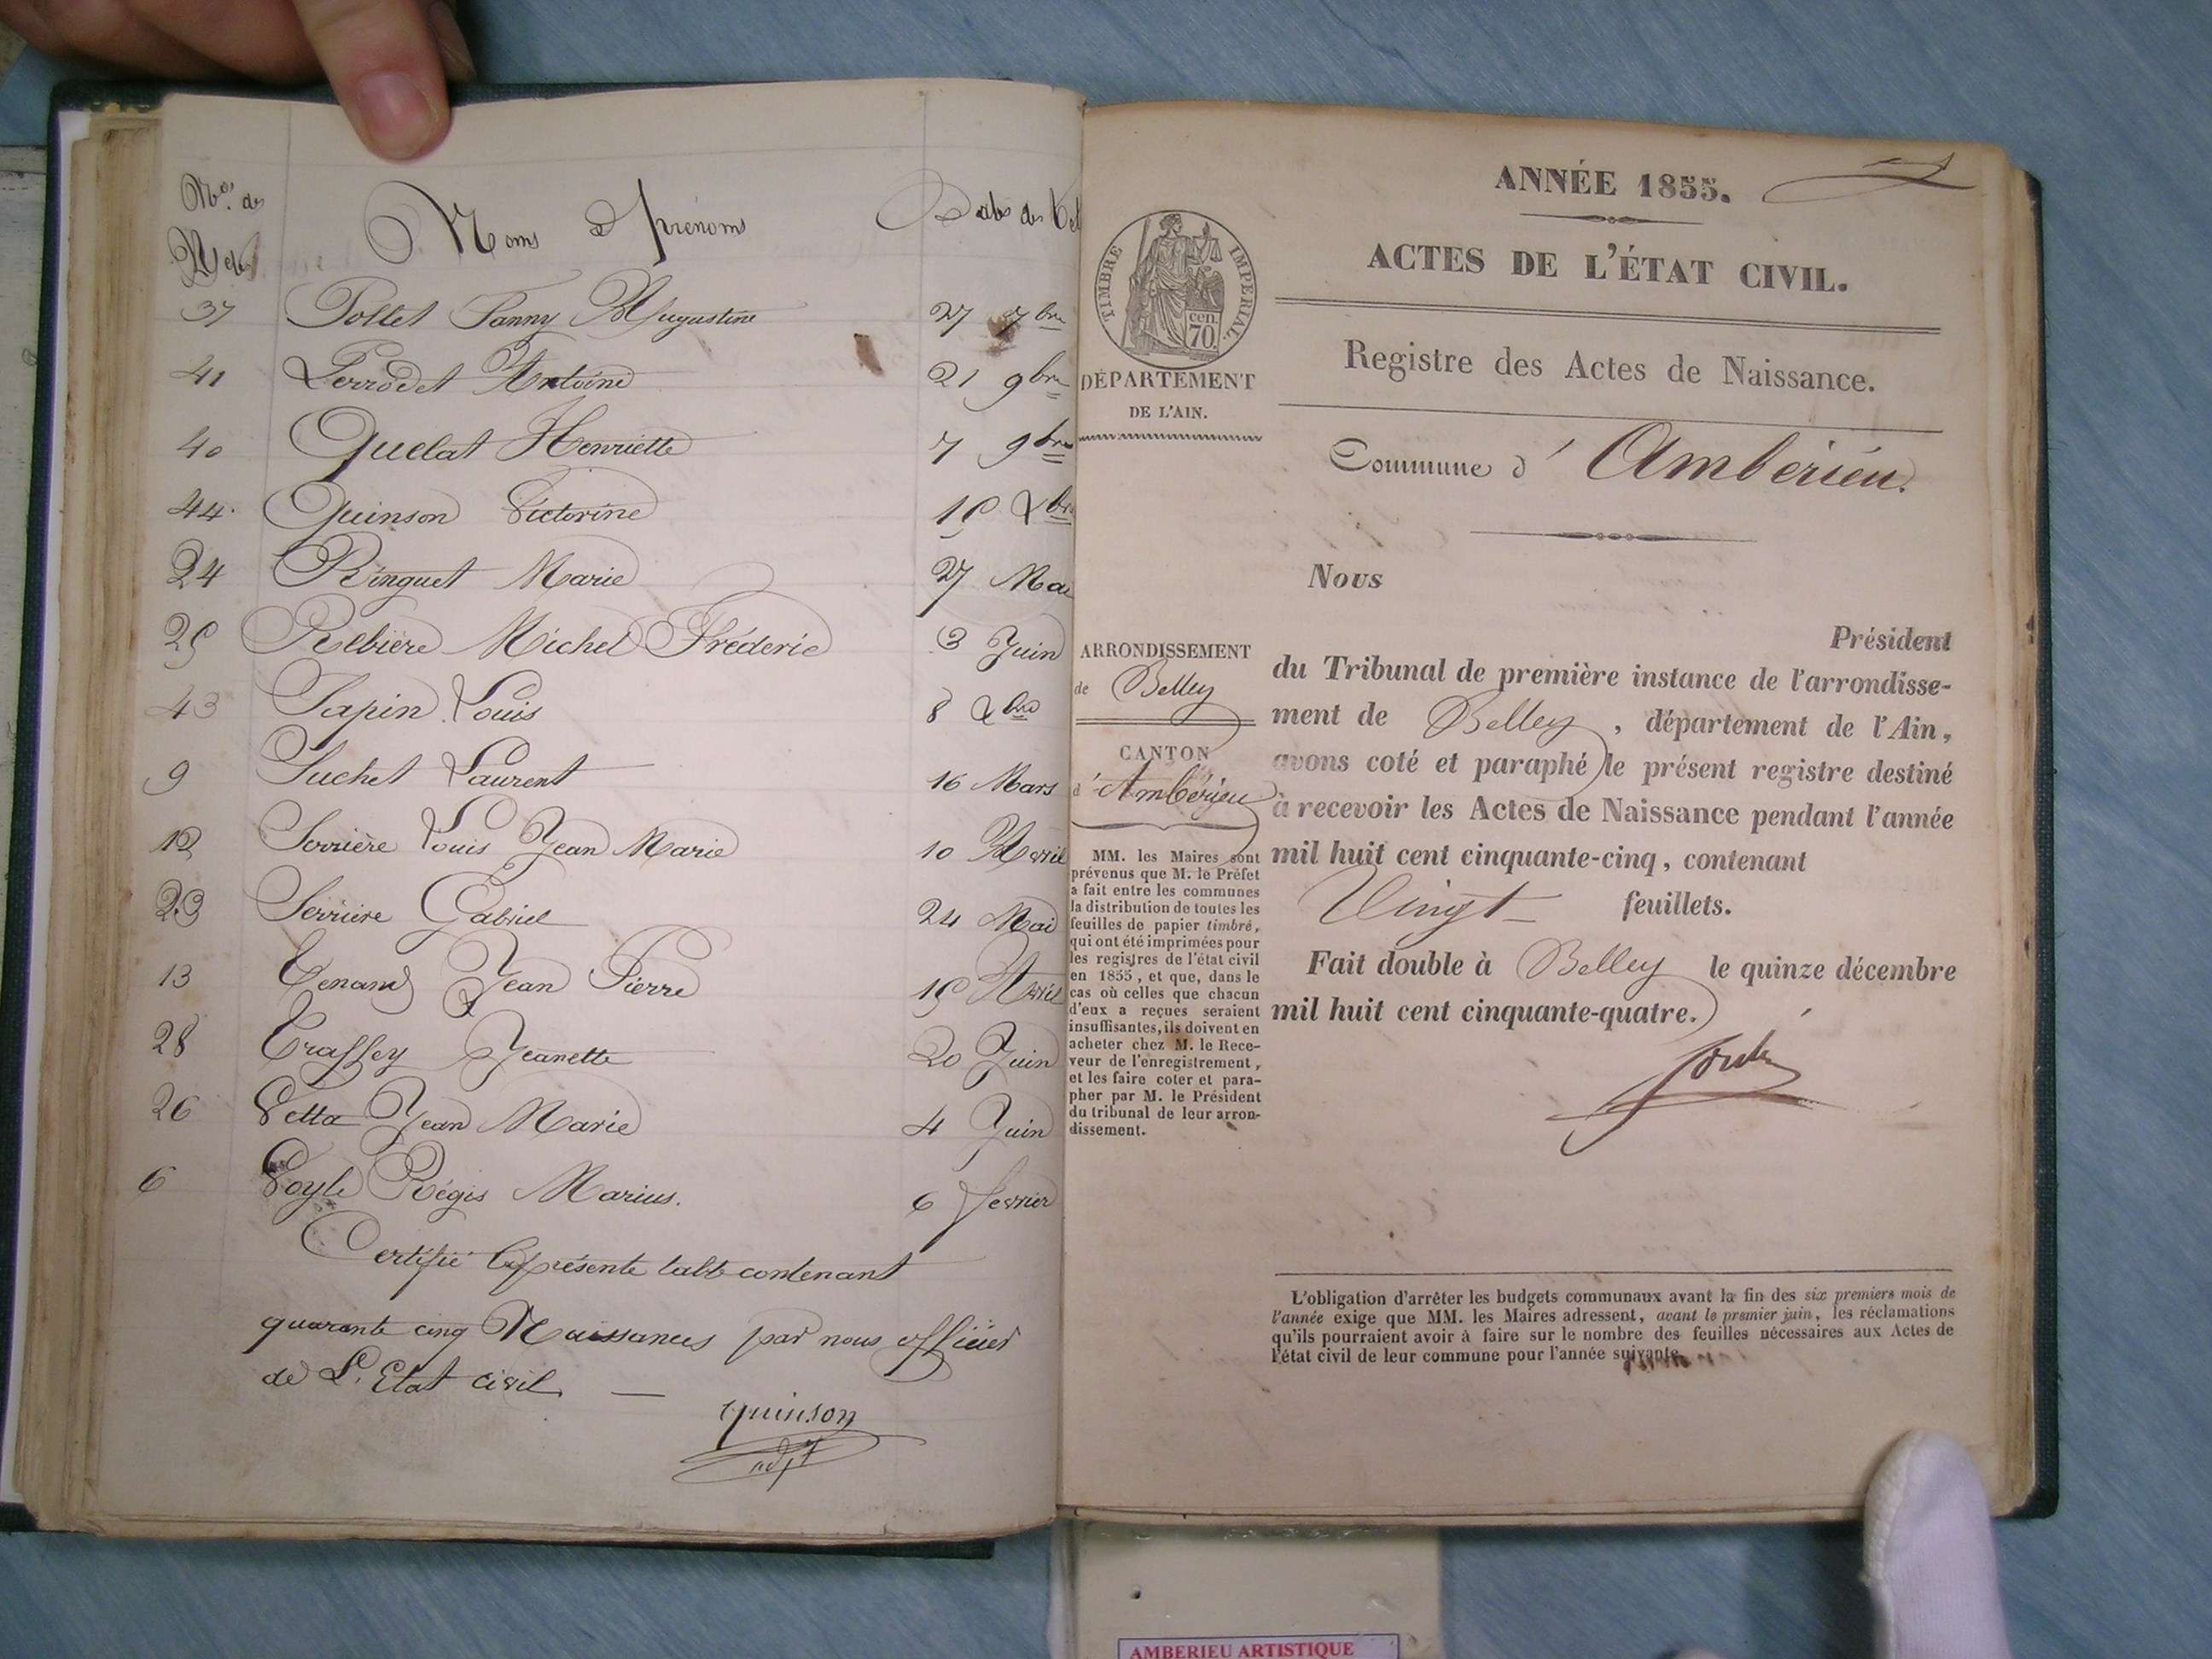 Nos des Actes
Noms et prénoms
Dates des
37 Pollet Fanny Augustine 27 7bre
41 Perrodet Antoine 21 9bre
40 Quelat Henriette 7 9bre
44. Quinson Victorine 15 Xbre
24 Ringuet Marie 27 Mai
25 Relbière Michel Fréderic 3 Juin
43 Sapin Louis 8 Xbre
9 Suchet Laurent 16 Mars
12 Serrière Louis Jean Marie 10 Avril
23 Serrière Gabriel 24 Mai
13 Tenand Jean Pierre 15 Avril
28 Traffey Jeanette 20 Juin
26 Vetta Jean Marie 4 Juin
6 Voyle Régis Marius. 6 fevrier
Certifié la présente table contenant
quarante cinq Naissances par nous officier
de L'Etat civil. —
Quinson
adjt
ANNÉE 1855.
ACTES DE L'ÉTAT CIVIL.
TIMBRE IMPERIAL.
cen.
70.
DÉPARTEMENT
DE L'AIN.
Registre des Actes de Naissance.
Commune d' Ambérieu.
ARRONDISSEMENT
de Belley
CANTON
d' Ambérieu
MM. les Maires sont
prévenus que M. le Préfet
a fait entre les communes
la distribution de toutes les
feuilles de papier timbré,
qui ont été imprimées pour
les registres de l'état civil
en 1855, et que, dans le
cas où celles que chacun
d'eux a reçues seraient
insuffisantes, ils doivent en
acheter chez M. le Rece-
veur de l'enregistrement,
et les faire coter et para-
pher par M. le Président
du tribunal de leur arron-
dissement.
Nous
Président
du Tribunal de première instance de l'arrondisse-
ment de Belley, département de l'Ain,
avons coté et paraphé le présent registre destiné
à recevoir les Actes de Naissance pendant l'année
mil huit cent cinquante-cinq, contenant
Vingt feuillets.
Fait double à Belley le quinze décembre
mil huit cent cinquante-quatre.
L'obligation d'arrêter les budgets communaux avant la fin des six premiers mois de
l'année exige que MM. les Maires adressent, avant le premier juin, les réclamations
qu'ils pourraient avoir à faire sur le nombre des feuilles nécessaires aux Actes de
l'état civil de leur commune pour l'année suivante.
AMBERIEU ARTISTIQUE